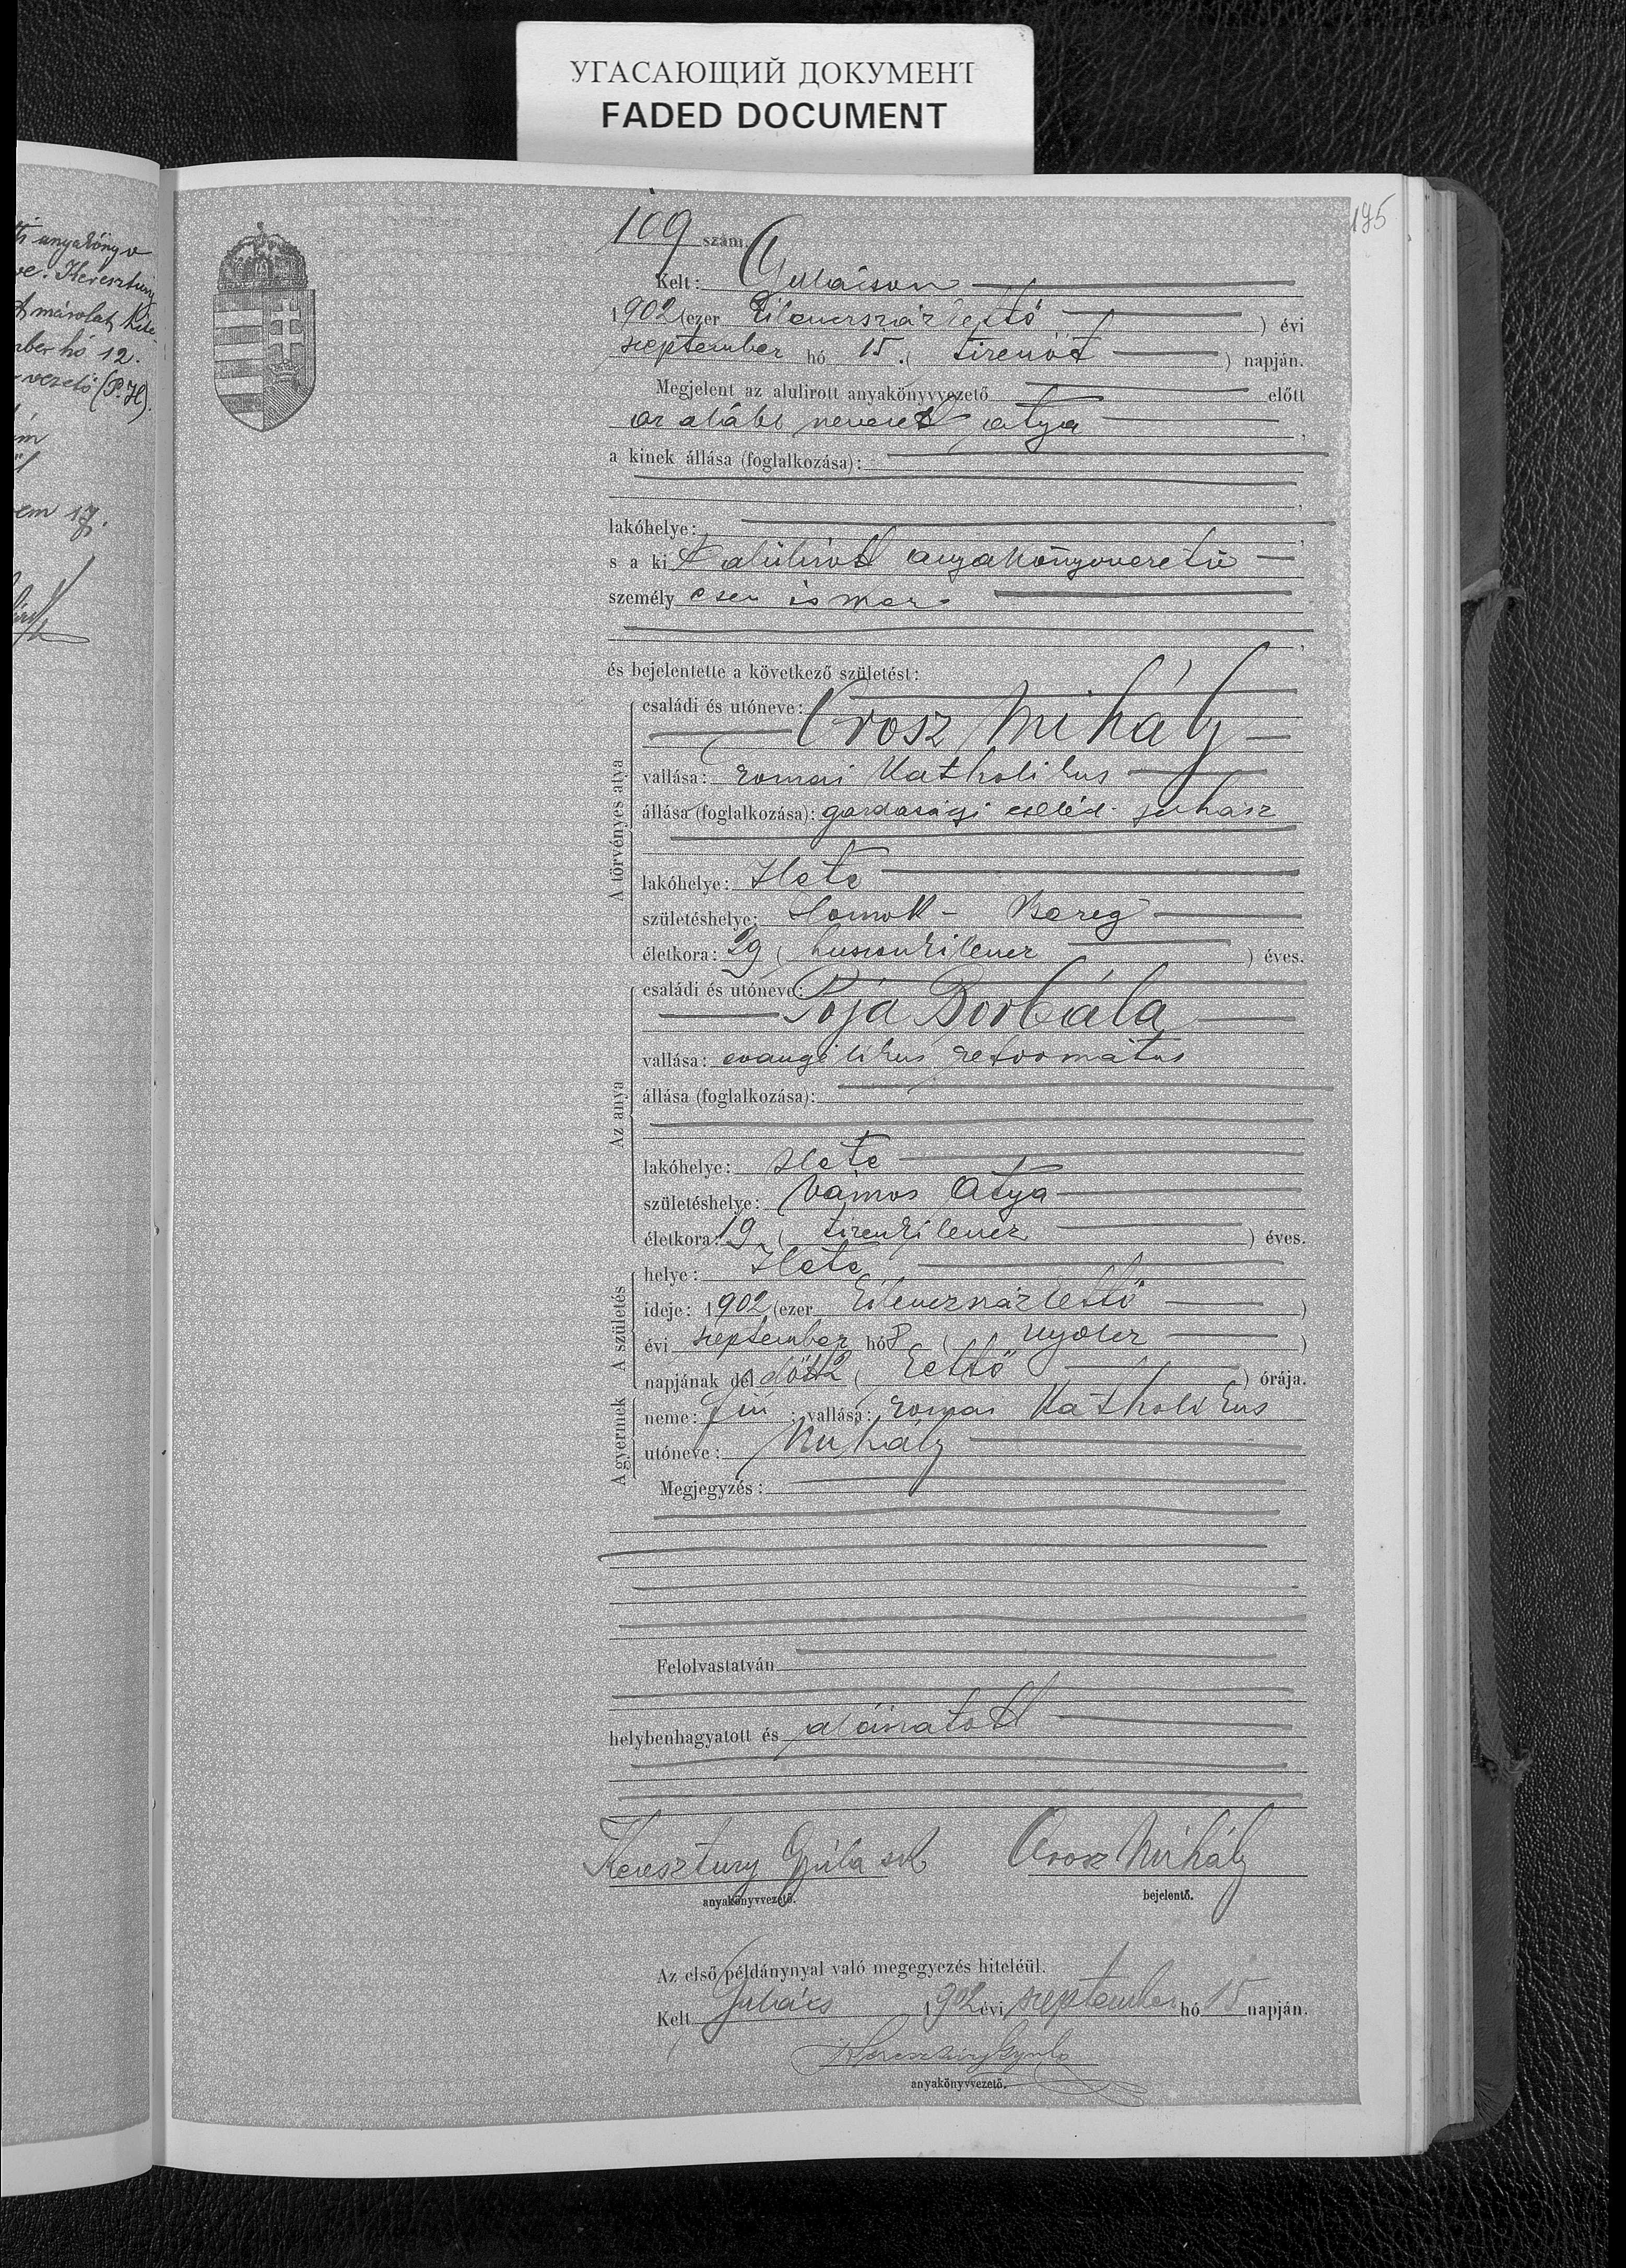 УГАСАЮЩИЙ ДОКУМЕНТ
FADED DOCUMENT
195
anyakönyv
Keresztury
hó 12.
vezető (P.H).
17.
109 szám.
Kelt: Guláison
1902 (ezer kilencszázkettő ) évi
szeptember hó 15. ( tizenöt ) napján.
Megjelent az alulirott anyakönyvvezető előtt
az alább nevezett atya ,
a kinek állása (foglalkozása):
lakóhelye:
s a kit alulirott anyakönyvvezető
személyesen ismer
és bejelentette a következő születést:
A törvényes atya
családi és utóneve:
Orosz Mihály
vallása: romai katholikus
állása (foglalkozása): gazdasági cseléd juhász
lakóhelye: Hete
születéshelye: Homok - Bereg
életkora: 29 ( huszonkilencz ) éves.
Az anya
családi és utóneve:
Pója Borbála
vallása: evangélikus református
állása (foglalkozása):
lakóhelye: Hete
születéshelye: Vámos Atya
életkora: 19 ( tizenkilencz ) éves.
A születés
helye: Hete
ideje: 1902 (ezer kilenczszázkettő )
évi szeptember hó 8 ( nyolcz )
napjának dél előtt 2 ( kettő ) órája.
A gyermek
neme: fiú ; vallása: romai katholikus
utóneve: Mihály
Megjegyzés:
Felolvastatván
helybenhagyatott és aláiratott
Keresztury Gyula sk Orosz Mihály
anyakönyvvezető. bejelentő.
Az első példánynyal való megegyezés hiteléül.
Kelt Gulács 1902 évi szeptember hó 15 napján.
Keresztury Gyula
anyakönyvvezető.